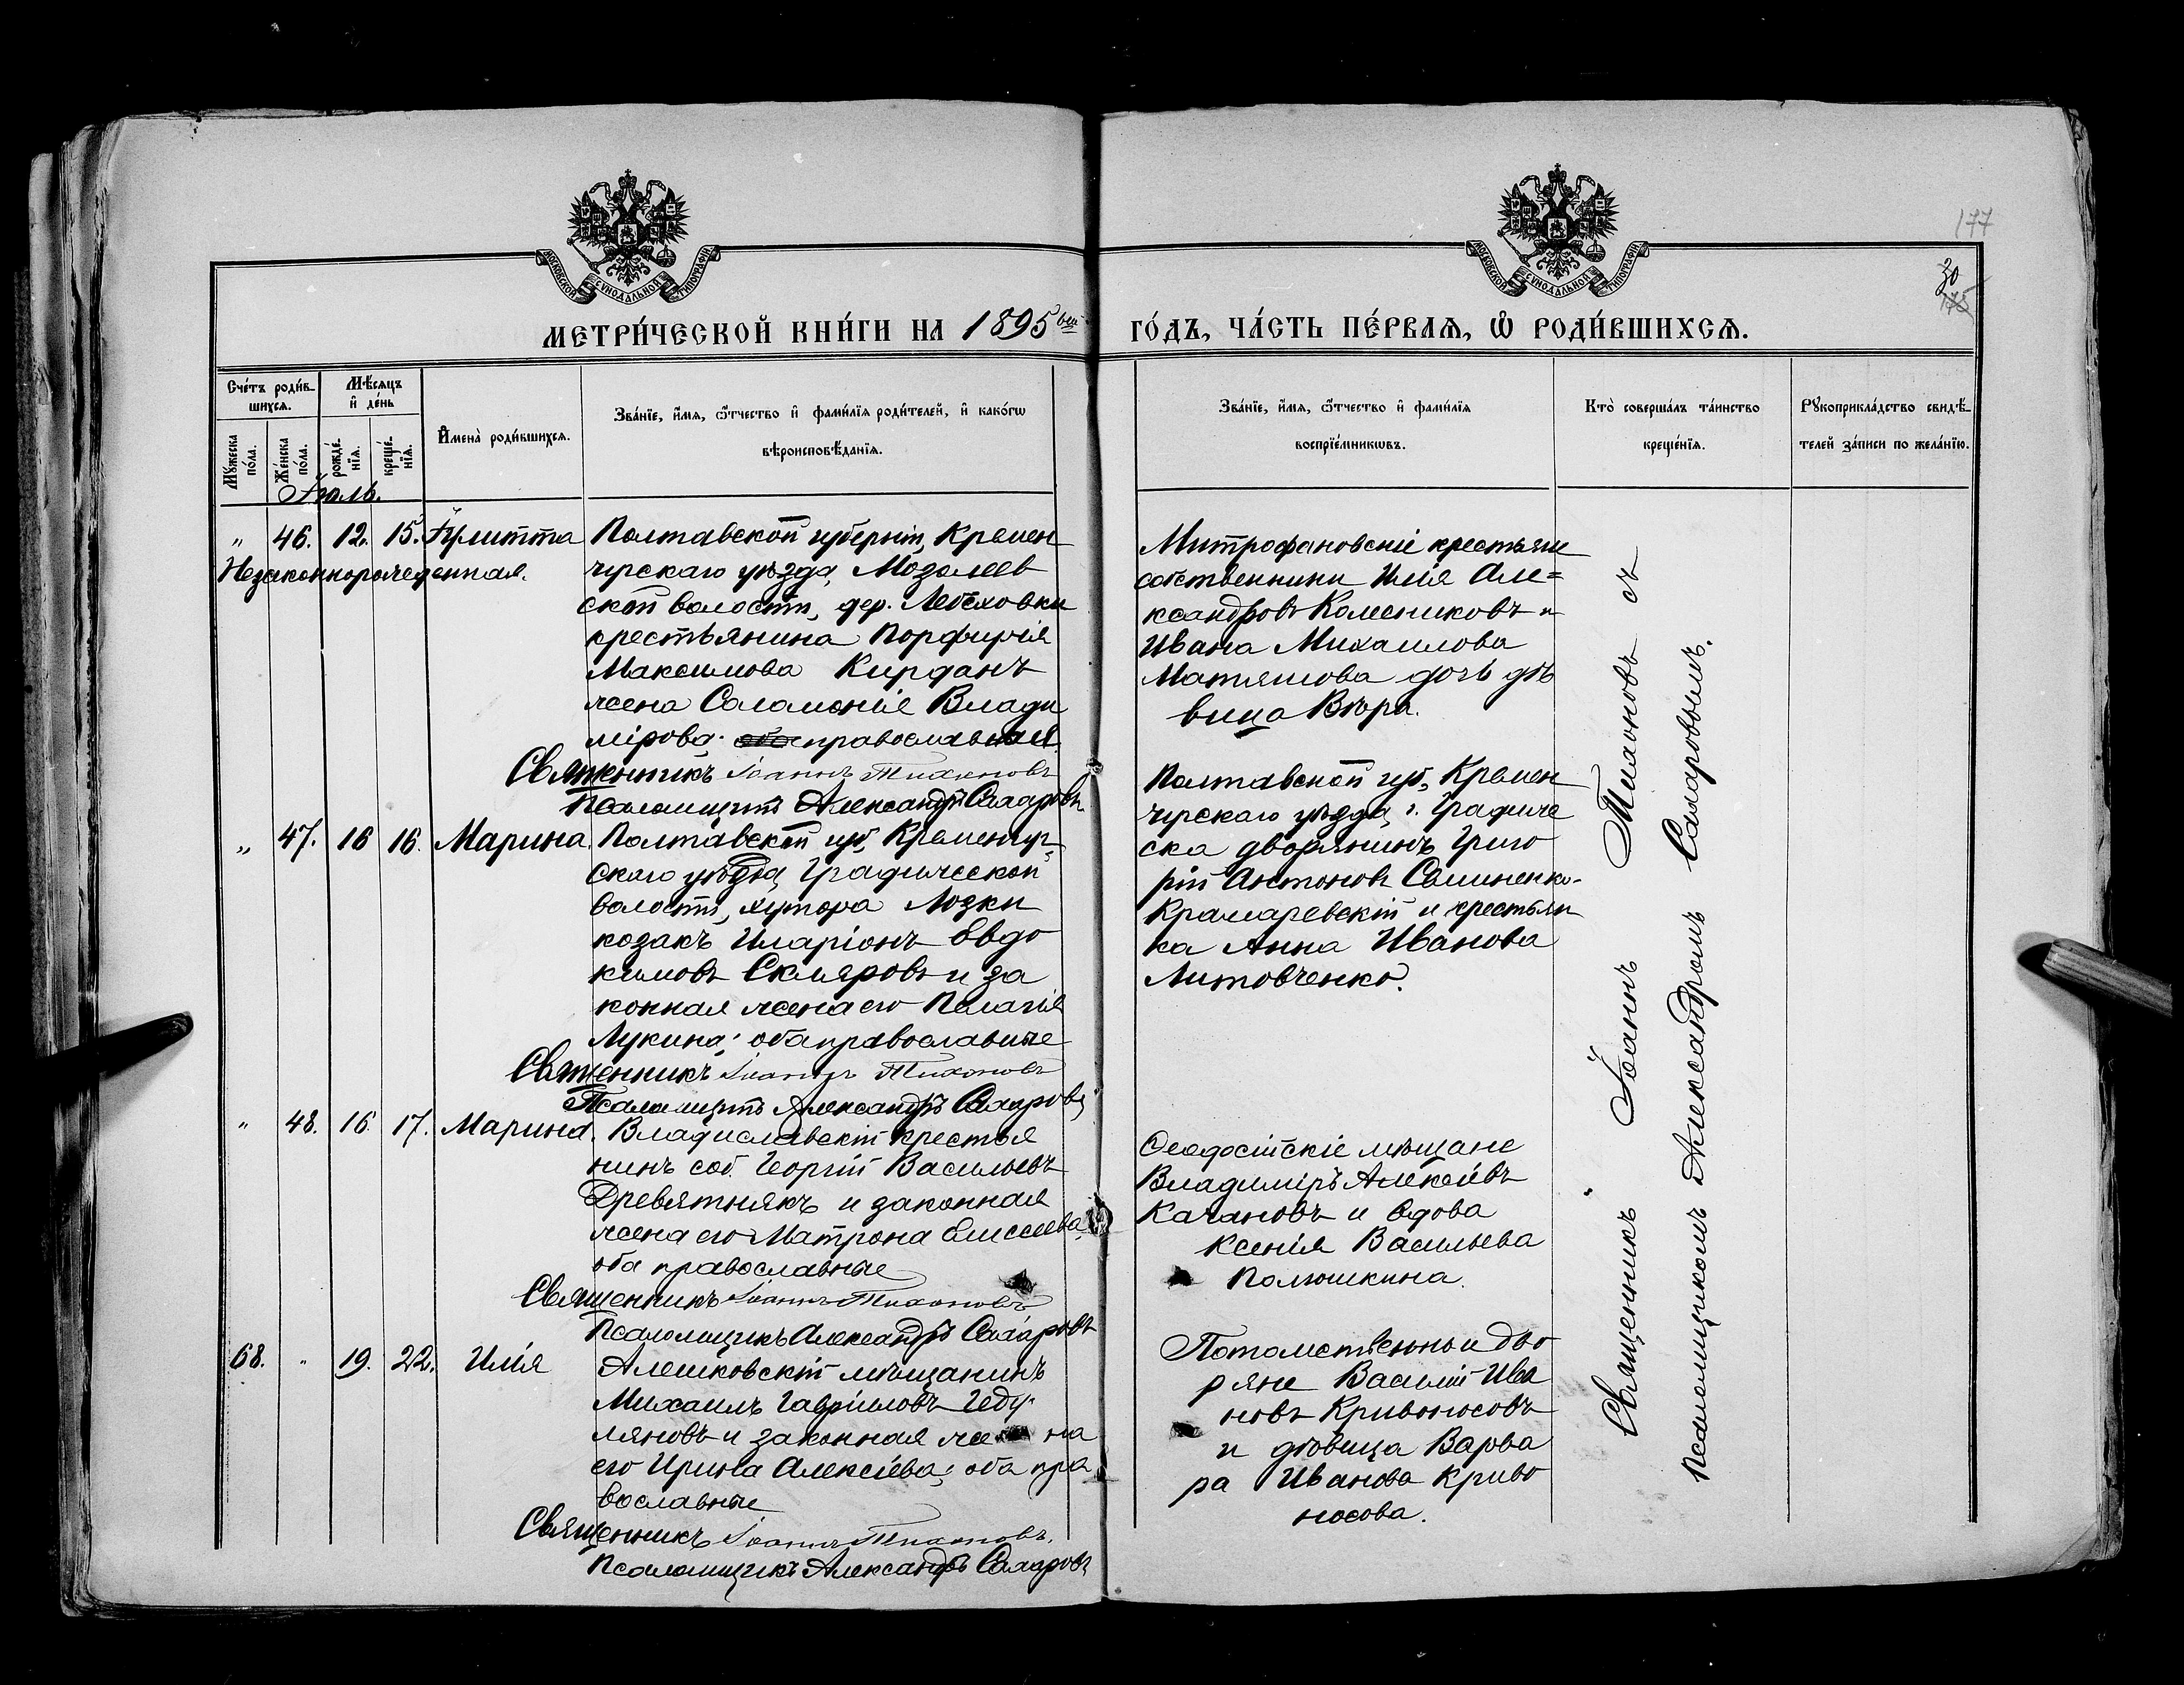 177
30
175
МОСКОВСКОЙ СѴНОДАЛЬНОЙ ТИПОГРАФІИ
МОСКОВСКОЙ СѴНОДАЛЬНОЙ ТИПОГРАФІИ
МЕТРИ́ЧЕСКОЙ КНИ́ГИ НА 1895ый ГО́ДЪ, ЧА́СТЬ ПЕ́РВАѦ, Ѽ РОДИ́ВШИХСѦ.
Сче́тъ роди́в-
шихсѧ.
Мꙋ́жеска по́ла.
Же́нска по́ла.
Мѣ́сѧцъ
и҆ де́нь
рожде́-
нїѧ.
креще́-
нїѧ.
И҆мена̀ роди́вшихсѧ.
Зва́нїе, и҆́мѧ, ѻ҆́тчество и҆ фами́лїѧ роди́телей, и҆ како́гѡ
вѣроисповѣ́данїѧ.
Зва́нїе, и҆́мѧ, ѻ҆́тчество и҆ фами́лїѧ
воспрїе́мникѡвъ.
Кто̀ соверша́лъ та́инство
креще́нїѧ.
Рꙋкоприкла́дство свидѣ́-
телей за́писи по жела́нїю.
Іюль.
" 46. 12. 15. Іулитта
Незаконнорожденная.
Полтавской губерніи, Кремен
чугскаго уѣзда, Мозолеев
ской волости, дер. Лебеховки
крестьянина Порфирія
Максимова Кирданъ
жена Саломонія Влади
мірова; оба православная
Священникъ Іоаннъ Тихоновъ
Псаломщикъ Александръ Самаровъ
Митрофановскіе крестьяне
собственники Илія Але=
ксандровъ Колесниковъ и
Ивана Михаилова
Матяшова дочь дѣ
вица Вѣра.
" 47. 16 16. Марина.
Полтавской губ., Кременчуг-
скаго уѣзда, Градижской
волости, хутора Лозки
козакъ Иларіонъ Евдо
кимовъ Скляровъ и за
конная жена его Пелагія
Лукина; оба православные
Священникъ Іоаннъ Тихоновъ
Псаломщикъ Александръ Самаровъ
Полтавской губ., Кремен
чугскаго уѣзда, г. Градиже
ска дворянинъ Григо
рій Антоновъ Семиненко-
Крамаревскій и крестьян
ка Анна Иванова
Литовченко.
" 48. 16. 17. Марина.
Владиславскій крестья
нинъ соб. Георгій Васильевъ
Древятнякъ и законная
жена его Матрона Елисеева;
оба православные
Священникъ Іоаннъ Тихоновъ
Псаломщикъ Александръ Самаровъ
Ѳеодосійскіе мѣщане
Владиміръ Алексѣевъ
Качановъ и вдова
Ксенія Васильева
Полюшкина.
68. " 19. 22. Илія
Алешковскій мѣщанинъ
Михаилъ Гавріиловъ Геду-
ляновъ и законная же на
его Ирина Алексѣева; оба пра
вославные
Священникъ Іоаннъ Тихоновъ.
Псаломщикъ Александръ Самаровъ
Потомственные дво
ряне Василій Ива
новъ Кривоносовъ
и дѣвица Варва
ра Иванова Криво
носова.
Священникъ Іоаннъ Тихоновъ съ
Псаломщикомъ Александромъ Самаровымъ.